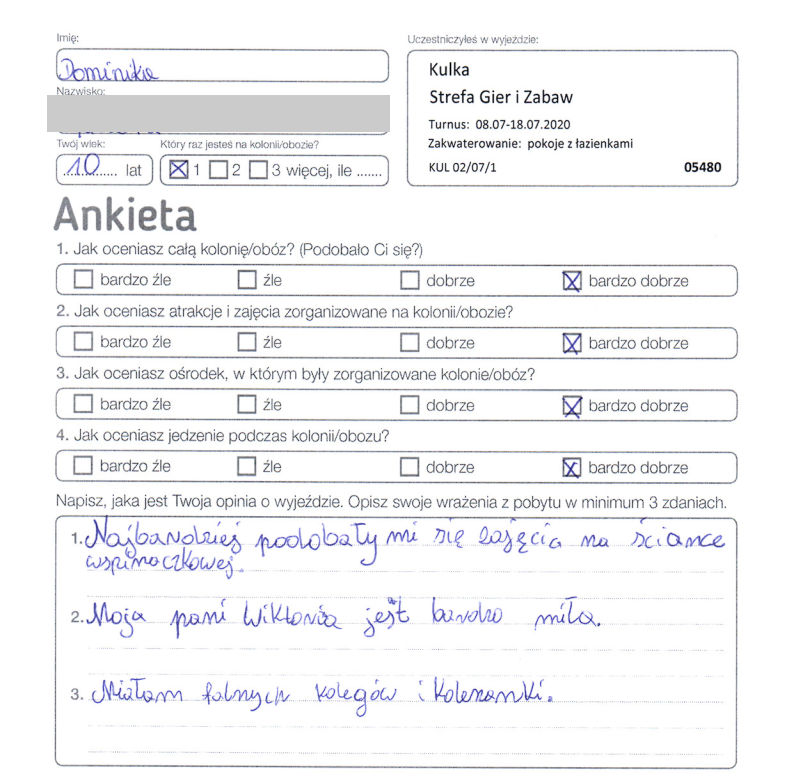 Imię:
Dominika
Nazwisko:
Twój wiek:
10 lat
Który raz jesteś na kolonii/obozie?
1 2 3 więcej, ile .......
Uczestniczyłeś w wyjeździe:
Kulka
Strefa Gier i Zabaw
Turnus: 08.07-18.07.2020
Zakwaterowanie: pokoje z łazienkami
KUL 02/07/1 05480
Ankieta
1. Jak oceniasz całą kolonię/obóz? (Podobało Ci się?)
bardzo źle źle dobrze bardzo dobrze
2. Jak oceniasz atrakcje i zajęcia zorganizowane na kolonii/obozie?
bardzo źle źle dobrze bardzo dobrze
3. Jak oceniasz ośrodek, w którym były zorganizowane kolonie/obóz?
bardzo źle źle dobrze bardzo dobrze
4. Jak oceniasz jedzenie podczas kolonii/obozu?
bardzo źle źle dobrze bardzo dobrze
Napisz, jaka jest Twoja opinia o wyjeździe. Opisz swoje wrażenia z pobytu w minimum 3 zdaniach.
1. Najbardziej podobały mi się zajęcia na ściance
wspinaczkowej.
2. Moja pani Wiktoria jest bardzo miła.
3. Miałam falnych kolegów i koleżanki.